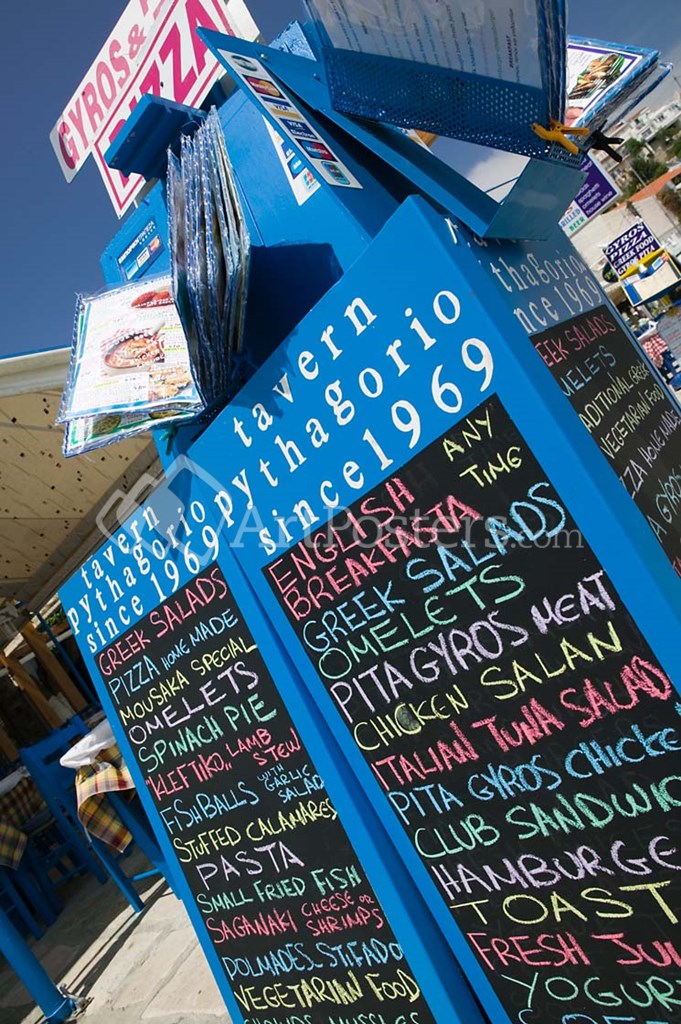 GYROS &
PIZZA
VISA
tavern
pythagorio
since 1969
GREEK SALADS
PIZZA HOME MADE
MOUSAKA SPECIAL
OMELETS
SPINACH PIE
"KLEFTIKO" LAMB STEW
FISHBALLS WITH GARLIC SALAD
STUFFED CALAMARES
PASTA
SMALL FRIED FISH
SAGANAKI CHEESE OR SHRIMPS
DOLMADES ST.FADO
VEGETARIAN FOOD
MUSSLES
tavern
pythagorio
since 1969
ANY
TIME
ENGLISH
BREAKFASTA
GREEK SALADS
OMELETS
PITA GYROS MEAT
CHICKEN SALAN
ITALIAN TUNA SALAD
PITA GYROS CHICKE
CLUB SANDWIC
HAMBURGE
TOAST
FRESH JUI
YOGUR
ythagorio
since 1969
EEK SALADS
MELETS
ADITIONAL GREEK
VEGETARIAN FOOD
ZZA HOME MADE
A GYROS
GYROS
PIZZA
GREEK FOOD
GYROS PITA
ArtPosters.com